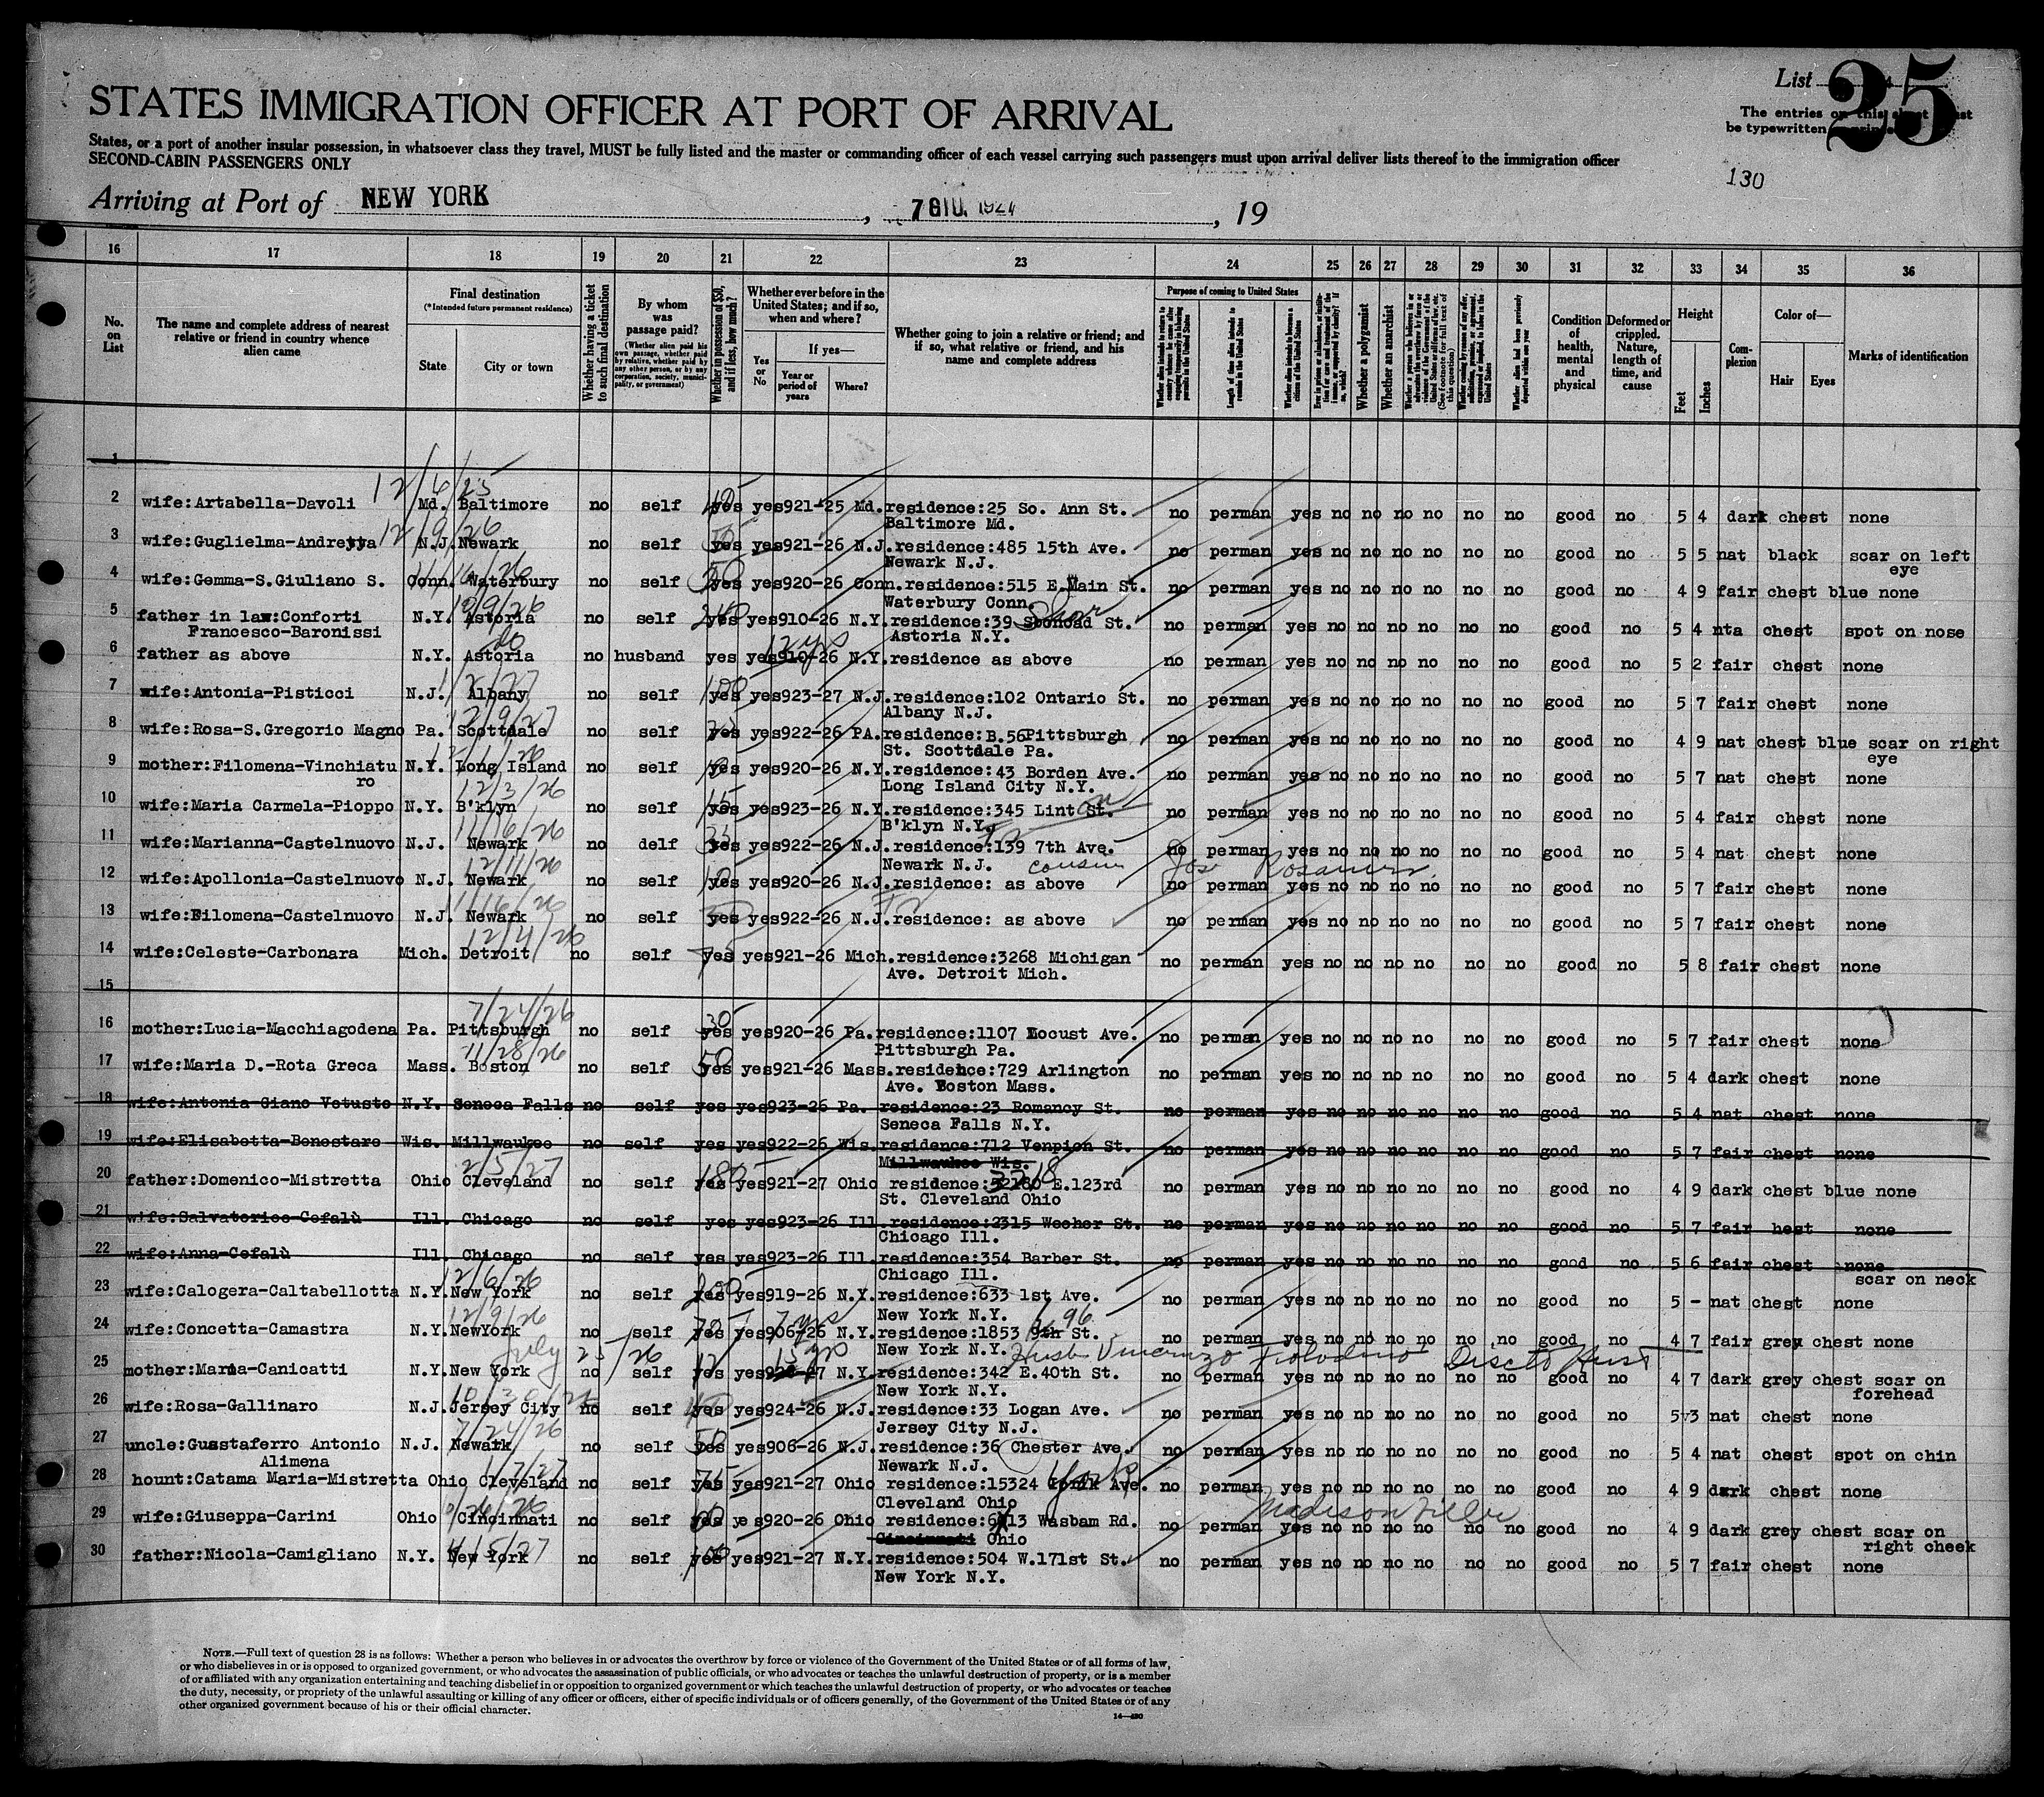 List 25
STATES IMMIGRATION OFFICER AT PORT OF ARRIVAL
The entries on this sheet must
be typewritten or printed
States, or a port of another insular possession, in whatsoever class they travel, MUST be fully listed and the master or commanding officer of each vessel carrying such passengers must upon arrival deliver lists thereof to the immigration officer
SECOND-CABIN PASSENGERS ONLY
130
Arriving at Port of NEW YORK , 7 GIU. 1927 , 19
16 17 18 19 20 21 22 23 24 25 26 27 28 29 30 31 32 33 34 35 36
No. on List
The name and complete address of nearest relative or friend in country whence alien came
Final destination
(*Intended future permanent residence)
State
City or town
Whether having a ticket to such final destination
By whom was passage paid?
(Whether alien paid his own passage, whether paid by relative, whether paid by any other person, or by any corporation, society, municipality, or government)
Whether in possession of $50, and if less, how much?
Whether ever before in the United States; and if so, when and where?
Yes or No
If yes—
Year or period of years
Where?
Whether going to join a relative or friend; and if so, what relative or friend, and his name and complete address
Purpose of coming to United States
Length of time alien intends to remain in the United States
Whether alien intends to become a citizen of the United States
Whether a polygamist
Whether an anarchist
Condition of health, mental and physical
Deformed or crippled. Nature, length of time, and cause
Height
Feet
Inches
Complexion
Color of—
Hair
Eyes
Marks of identification
1
12/6/25
2 wife:Artabella-Davoli Md. Baltimore no self yes yes921-25 Md.residence:25 So. Ann St. no perman yes no no no no no no good no 5 4 dark chest none
Baltimore Md.
12/9/26
3 wife:Guglielma-Andretta N.J.Newark no self yes yes921-26 N.J.residence:485 15th Ave. no perman yes no no no no no no good no 5 5 nat black scar on left
Newark N.J. eye
11/16/26
4 wife:Gemma-S.Giuliano S. Conn. Waterbury no self 50 yes yes920-26 Conn.residence:515 E.Main St. no perman yes no no no no no no good no 4 9 fair chest blue none
Waterbury Conn.
12/9/26
5 father in law:Conforti N.Y. Astoria no self yes yes910-26 N.Y.residence:39 St. no perman yes no no no no no no good no 5 4 nta chest spot on nose
Francesco-Baronissi Astoria N.Y.
do 12 yrs
6 father as above N.Y. Astoria no husband yes yes910-26 N.Y.residence as above no perman yes no no no no no no good no 5 2 fair chest none
1/2/27
7 wife:Antonia-Pisticci N.J. Albany no self 100 yes yes923-27 N.J.residence:102 Ontario St. no perman yes no no no no no no good no 5 7 fair chest none
Albany N.J.
12/9/27
8 wife:Rosa-S.Gregorio Magno Pa. Scottdale no self yes yes922-26 PA.residence:B.56Pittsburgh no perman yes no no no no no no good no 4 9 nat chest blue scar on right
St. Scottdale Pa. eye
12/1/26
9 mother:Filomena-Vinchiatu N.Y. Long Island no self yes yes920-26 N.Y.residence:43 Borden Ave. no perman yes no no no no no no good no 5 7 nat chest none
ro Long Island City N.Y.
12/3/26
10 wife:Maria Carmela-Pioppo N.Y. B'klyn no self 15 yes yes923-26 N.Y.residence:345 Lint on St. no perman yes no no no no no no good no 5 4 fair chest none
B'klyn N.Y.
11/16/26
11 wife:Marianna-Castelnuovo N.J. Newark no delf yes yes922-26 N.J.residence:139 7th Ave. no perman yes no no no no no no good no 5 4 nat chest none
Newark N.J. cousin Jos
12/11/26
12 wife:Apollonia-Castelnuovo N.J. Newark no self yes yes920-26 N.J.residence: as above no perman yes no no no no no no good no 5 7 fair chest none
11/16/26
13 wife:Filomena-Castelnuovo N.J. Newark no self yes yes922-26 N.J.residence: as above no perman yes no no no no no no good no 5 7 fair chest none
12/4/26
14 wife:Celeste-Carbonara Mich. Detroit no self 75 yes yes921-26 Mich.residence:3268 Michigan no perman yes no no no no no no good no 5 8 fair chest none
Ave. Detroit Mich.
15
7/24/26
16 mother:Lucia-Macchiagodena Pa. Pittsburgh no self 30 yes yes920-26 Pa.residence:1107 Locust Ave. no perman yes no no no no no no good no 5 7 fair chest none
Pittsburgh Pa.
11/28/26
17 wife:Maria D.-Rota Greca Mass. Boston no self 50 yes yes921-26 Mass.residence:729 Arlington no perman yes no no no no no no good no 5 4 dark chest none
Ave. Boston Mass.
18 wife:Antonia Giano Vetusto N.Y. Seneca Falls no self yes yes923-26 Pa. residence:23 Romancy St. no perman yes no no no no no no good no 5 4 nat chest none
Seneca Falls N.Y.
19 wife:Elisabetta-Benestare Wis. Millwaukee no self yes yes922-26 Wis.residence:712 Venpion St. no perman yes no no no no no no good no 5 7 fair chest none
Millwaukee Wis.
2/5/27
20 father:Domenico-Mistretta Ohio Cleveland no self 180 yes yes921-27 Ohio residence: 3218 E.123rd no perman yes no no no no no no good no 4 9 dark chest blue none
St. Cleveland Ohio
21 wife:Salvatorice-Cefalù Ill. Chicago no self yes yes923-26 Ill.residence:2315 Wecher St. no perman yes no no no no no no good no 5 7 fair hest none
Chicago Ill.
22 wife:Anna-Cefalù Ill. Chicago no self yes yes923-26 Ill.residence:354 Barber St. no perman yes no no no no no no good no 5 6 fair chest none
Chicago Ill. scar on neck
12/6/26
23 wife:Calogera-Caltabellotta N.Y.New York no self 200 yes yes919-26 N.Y.residence:633 1st Ave. no perman yes no no no no no no good no 5 - nat chest none
New York N.Y.
12/9/26 7 yrs 96
24 wife:Concetta-Camastra N.Y.NewYork no self yes yes906-26 N.Y.residence:1853 9th St. no perman yes no no no no no no good no 4 7 fair grey chest none
New York N.Y. Husb Vincenzo
July 25/26
25 mother:Maria-Canicatti N.Y.New York no self yes yes N.Y.residence:342 E.40th St. no perman yes no no no no no no good no 4 7 dark grey chest scar on
New York N.Y. forehead
10/30/26
26 wife:Rosa-Gallinaro N.J.Jersey City no self yes yes924-26 N.J.residence:33 Logan Ave. no perman yes no no no no no no good no 5 3 nat chest none
Jersey City N.J.
7/24/26
27 uncle:Guastaferro Antonio N.J. Newark no self 50 yes yes906-26 N.J.residence:36 Chester Ave. no perman yes no no no no no no good no 5 4 nat chest spot on chin
Alimena Newark N.J.
1/7/27
28 hount:Catama Maria-Mistretta Ohio Cleveland no self 75 yes yes921-27 Ohio residence:15324 Ave. no perman yes no no no no no no good no 4 9 dark chest none
Cleveland Ohio
10/26/26 Madisonville
29 wife:Giuseppa-Carini Ohio Cincinnati no self yes yes920-26 Ohio residence: Wasbam Rd. no perman yes no no no no no no good no 4 9 dark grey chest scar on
Cincinnati Ohio right cheek
4/5/27
30 father:Nicola-Camigliano N.Y. New York no self 100 yes yes921-27 N.Y.residence:504 W.171st St. no perman yes no no no no no no good no 5 7 fair chest none
New York N.Y.
NOTE.—Full text of question 28 is as follows: Whether a person who believes in or advocates the overthrow by force or violence of the Government of the United States or of all forms of law,
or who disbelieves in or is opposed to organized government, or who advocates the assassination of public officials, or who advocates or teaches the unlawful destruction of property, or is a member
of or affiliated with any organization entertaining and teaching disbelief in or opposition to organized government or which teaches the unlawful destruction of property, or who advocates or teaches
the duty, necessity, or propriety of the unlawful assaulting or killing of any officer or officers, either of specific individuals or of officers generally, of the Government of the United States or of any
other organized government because of his or their official character.
14—430